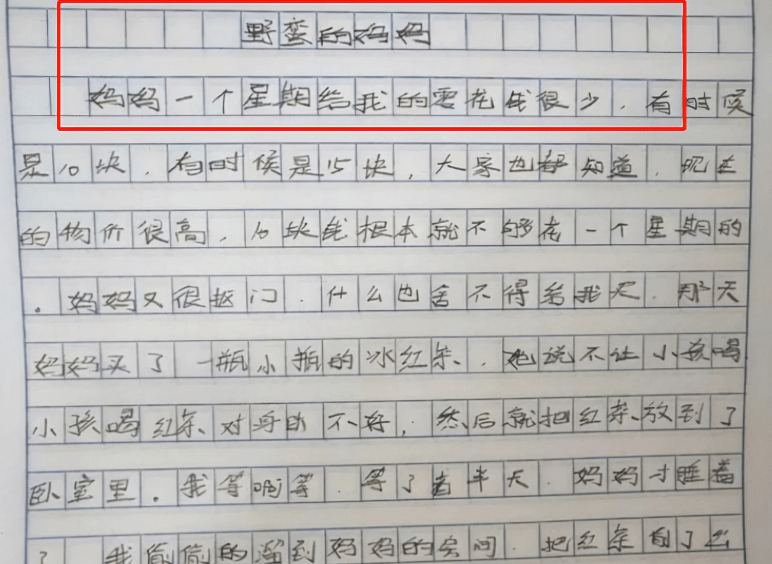 野蛮的妈妈
妈妈一个星期给我的零花钱很少，有时候
是10块，有时候是15块，大家也都知道，现在
的物价很高，10块钱根本就不够花一个星期的
。妈妈又很抠门，什么也舍不得给我买，那天
妈妈买了一瓶小瓶的冰红茶，她说不让小孩喝
小孩喝红茶对身体不好，然后就把红茶放到了
卧室里。我等啊等，等了老半天，妈妈才睡着
了，我偷偷的溜到妈妈的房间，把红茶偷了出